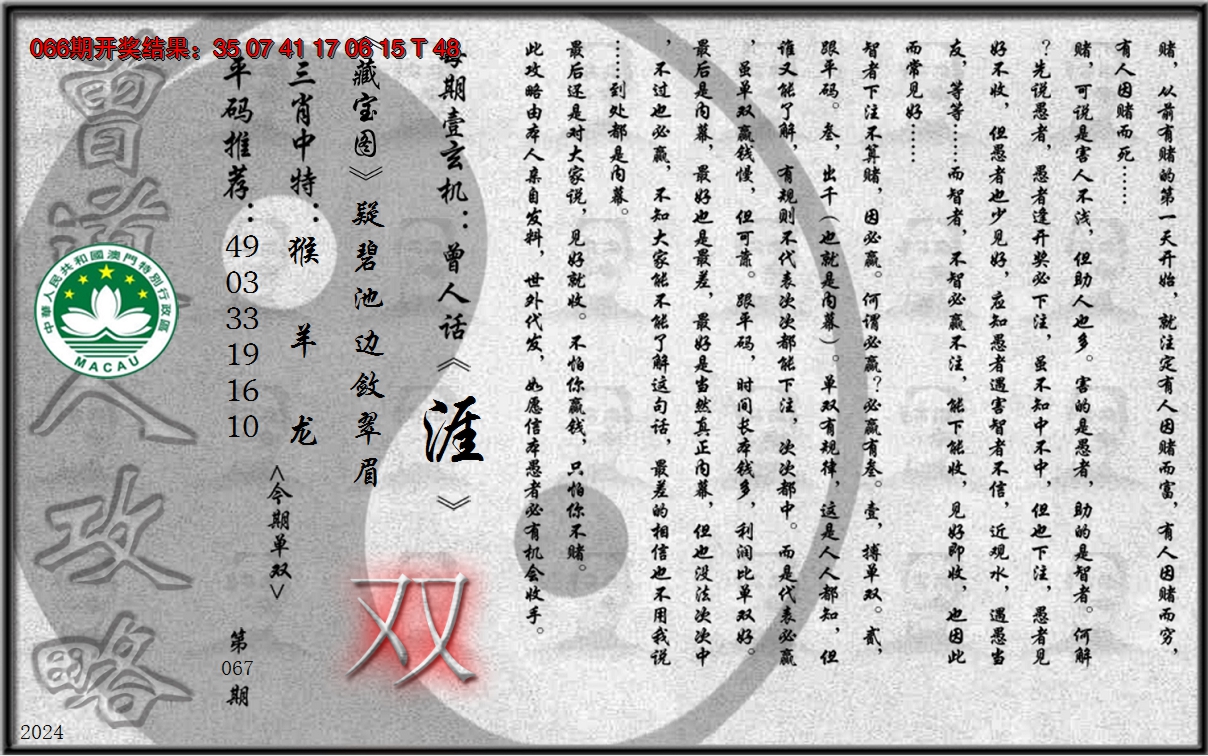 066期开奖结果：35 07 41 17 06 15 T 48
赌，从前有赌的第一天开始，就注定有人因赌而富，有人因赌而穷，
有人因赌而死……
赌，可说是害人不浅，但助人也多。害的是愚者，助的是智者。何解
？先说愚者，愚者逢开奖必下注，虽不知中不中，但也下注，愚者见
好不收，但愚者也少见好，应知愚者遇害智者不信，近观水，遇愚当
友，等等……而智者，不智必赢不注，能下能收，见好即收，也因此
而常见好……
智者下注不算赌，因必赢。何谓必赢？必赢有叁。壹，搏单双。贰，
跟平码。叁，出千（也就是内幕）。单双有规律，这是人人都知，但
谁又能了解，有规则不代表次次都能下注，次次都中。而是代表必赢
，虽单双赢钱慢，但可靠。跟平码，时间长本钱多，利润比单双好。
最后是内幕，最好也是最差，最好是当然真正内幕，但也没法次次中
，不过也必赢，不知大家能不能了解这句话，最差的相信也不用我说
……到处都是内幕。
最后还是对大家说，见好就收。不怕你赢钱，只怕你不赌。
此攻略由本人亲自发料，世外代发，如愿信本愚者必有机会收手。
每期壹玄机：曾人话《涯》
《藏宝图》疑碧池边敛翠眉
双
三肖中特：猴 羊 龙
<今期单双>
平码推荐：49 03 33 19 16 10
第067期
曾道人攻略
中華人民共和國澳門特別行政區
MACAU
2024